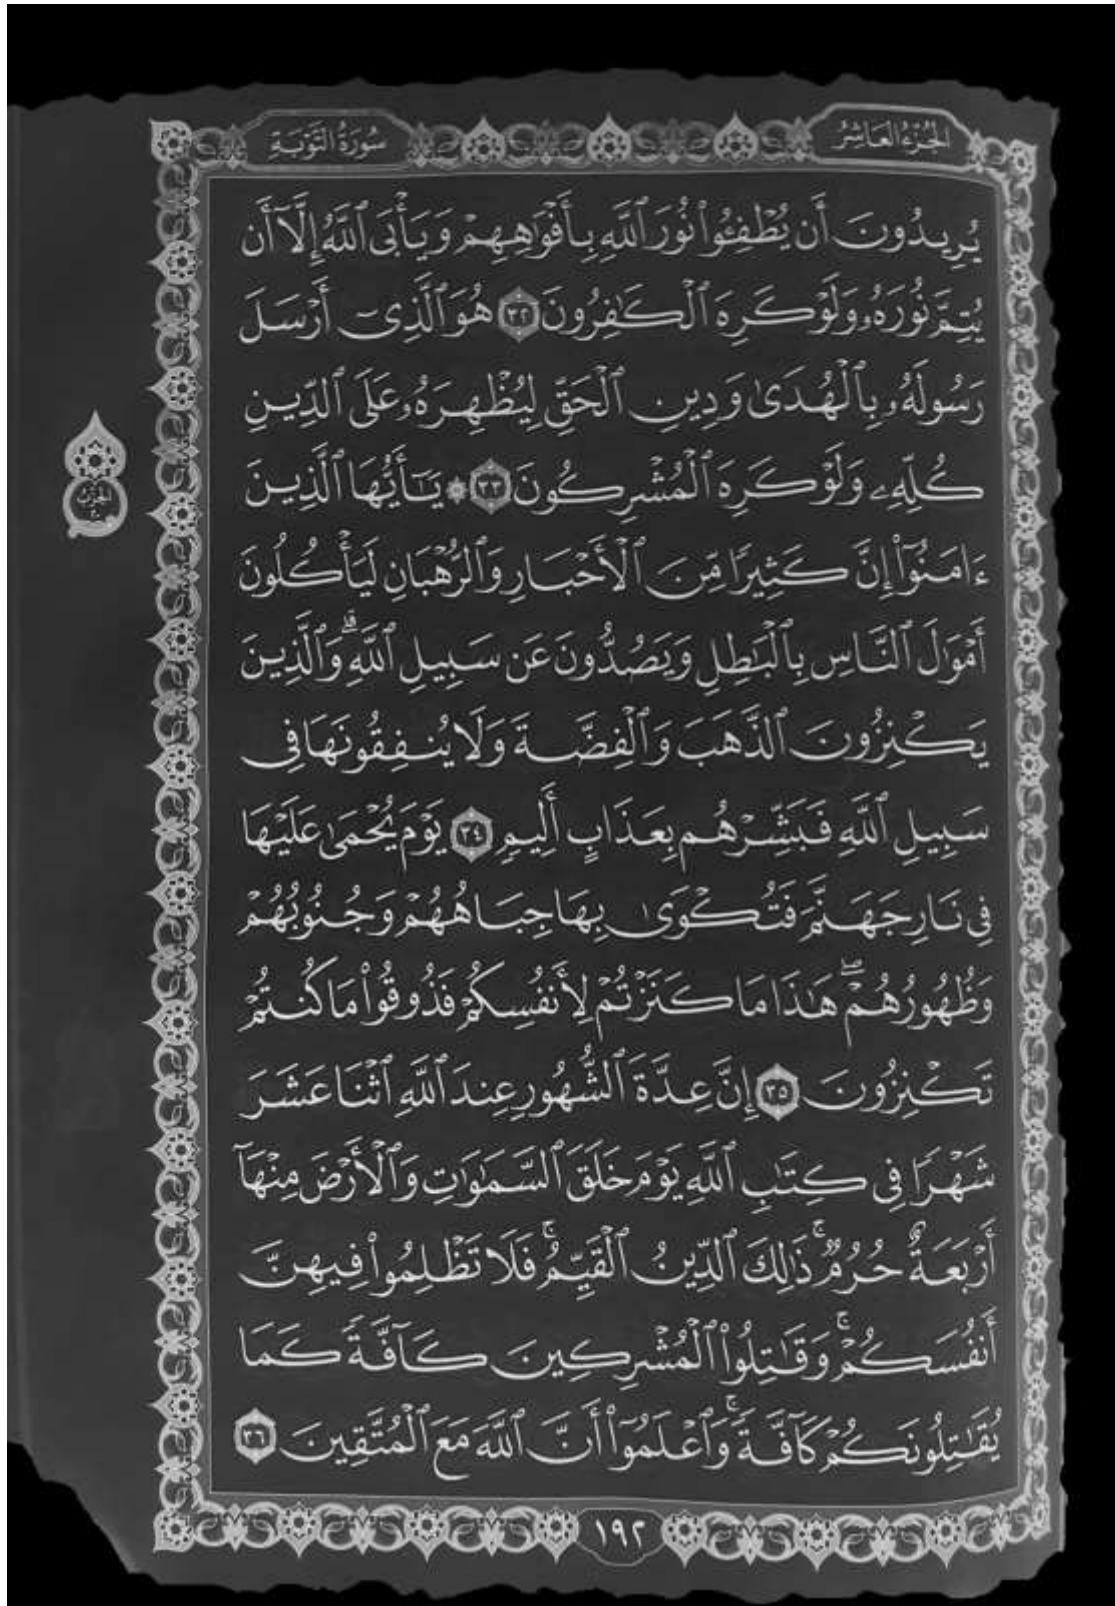 الجُزْءُ العَاشِرُ
سُورَةُ التَّوْبَةِ
يُرِيدُونَ أَن يُطْفِـُٔوا۟ نُورَ ٱللَّهِ بِأَفْوَٰهِهِمْ وَيَأْبَى ٱللَّهُ إِلَّآ أَن
يُتِمَّ نُورَهُۥ وَلَوْ كَرِهَ ٱلْكَـٰفِرُونَ ٣٢ هُوَ ٱلَّذِىٓ أَرْسَلَ
رَسُولَهُۥ بِٱلْهُدَىٰ وَدِينِ ٱلْحَقِّ لِيُظْهِرَهُۥ عَلَى ٱلدِّينِ
كُلِّهِۦ وَلَوْ كَرِهَ ٱلْمُشْرِكُونَ ٣٣ ۞ يَـٰٓأَيُّهَا ٱلَّذِينَ
ءَامَنُوٓا۟ إِنَّ كَثِيرًا مِّنَ ٱلْأَحْبَارِ وَٱلرُّهْبَانِ لَيَأْكُلُونَ
أَمْوَٰلَ ٱلنَّاسِ بِٱلْبَـٰطِلِ وَيَصُدُّونَ عَن سَبِيلِ ٱللَّهِ ۗ وَٱلَّذِينَ
يَكْنِزُونَ ٱلذَّهَبَ وَٱلْفِضَّةَ وَلَا يُنفِقُونَهَا فِى
سَبِيلِ ٱللَّهِ فَبَشِّرْهُم بِعَذَابٍ أَلِيمٍ ٣٤ يَوْمَ يُحْمَىٰ عَلَيْهَا
فِى نَارِ جَهَنَّمَ فَتُكْوَىٰ بِهَا جِبَاهُهُمْ وَجُنُوبُهُمْ
وَظُهُورُهُمْ ۖ هَـٰذَا مَا كَنَزْتُمْ لِأَنفُسِكُمْ فَذُوقُوا۟ مَا كُنتُمْ
تَكْنِزُونَ ٣٥ إِنَّ عِدَّةَ ٱلشُّهُورِ عِندَ ٱللَّهِ ٱثْنَا عَشَرَ
شَهْرًا فِى كِتَـٰبِ ٱللَّهِ يَوْمَ خَلَقَ ٱلسَّمَـٰوَٰتِ وَٱلْأَرْضَ مِنْهَآ
أَرْبَعَةٌ حُرُمٌ ۚ ذَٰلِكَ ٱلدِّينُ ٱلْقَيِّمُ ۚ فَلَا تَظْلِمُوا۟ فِيهِنَّ
أَنفُسَكُمْ ۚ وَقَـٰتِلُوا۟ ٱلْمُشْرِكِينَ كَآفَّةً كَمَا
يُقَـٰتِلُونَكُمْ كَآفَّةً ۚ وَٱعْلَمُوٓا۟ أَنَّ ٱللَّهَ مَعَ ٱلْمُتَّقِينَ ٣٦
١٩٢